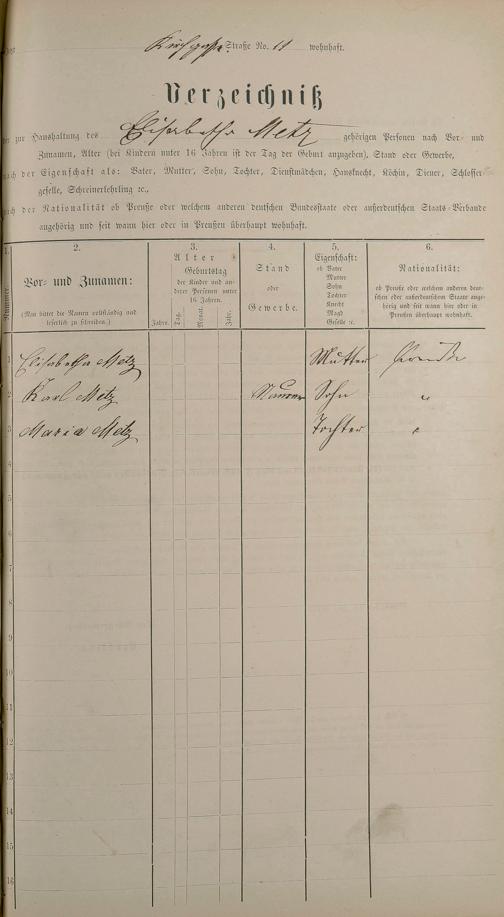 Kirchgasse Straße No. 11 wohnhaft.
Verzeichniß
der zur Haushaltung des Elisabetha Metz gehörigen Personen nach Vor- und
Zunamen, Alter (bei Kindern unter 16 Jahren ist der Tag der Geburt anzugeben), Stand oder Gewerbe,
nach der Eigenschaft als: Vater, Mutter, Sohn, Tochter, Dienstmädchen, Hausknecht, Köchin, Diener, Schlosser-
geselle, Schreinerlehrling ec.,
nach der Nationalität ob Preuße oder welchem anderen deutschen Bundesstaate oder außerdeutschen Staats-Verbande
angehörig und seit wann hier oder in Preußen überhaupt wohnhaft.
1.
Nummer.
2.
Vor- und Zunamen:
(Man bittet die Namen vollständig und
leserlich zu schreiben.)
3.
Alter
Geburtstag
der Kinder und an-
derer Personen unter
16 Jahren.
Jahre.
Tag.
Monat.
Jahr.
4.
Stand
oder
Gewerbe.
5.
Eigenschaft:
ob Vater
Mutter
Sohn
Tochter
Knecht
Magd
Geselle ec.
6.
Nationalität:
ob Preuße oder welchem anderen deut-
schen oder außerdeutschen Staate ange-
hörig und seit wann hier oder in
Preußen überhaupt wohnhaft.
1 Elisabetha Metz Mutter Preuße
2 Karl Metz Maurer Sohn "
3 Maria Metz Tochter "
4
5
6
7
8
9
10
11
12
13
14
15
16